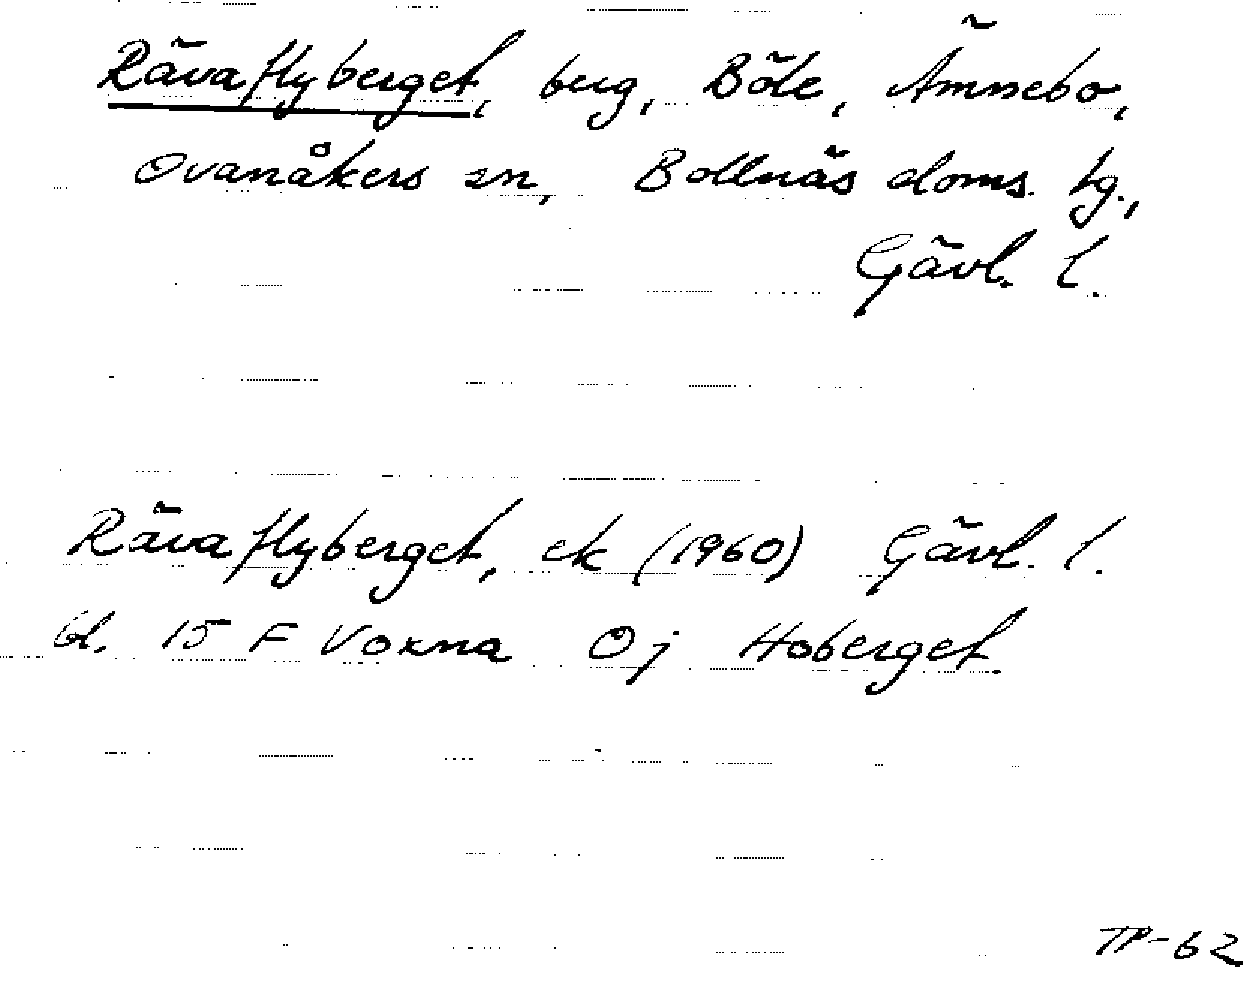 Rävaflyberget, berg, Böle, Ämnebo,
Ovanåkers sn, Bollnäs doms. tg.,
Gävl. l.
Rävaflyberget, ek (1960) Gävl. l.
bl. 15 F Voxna 0j Hoberget.
TP-62